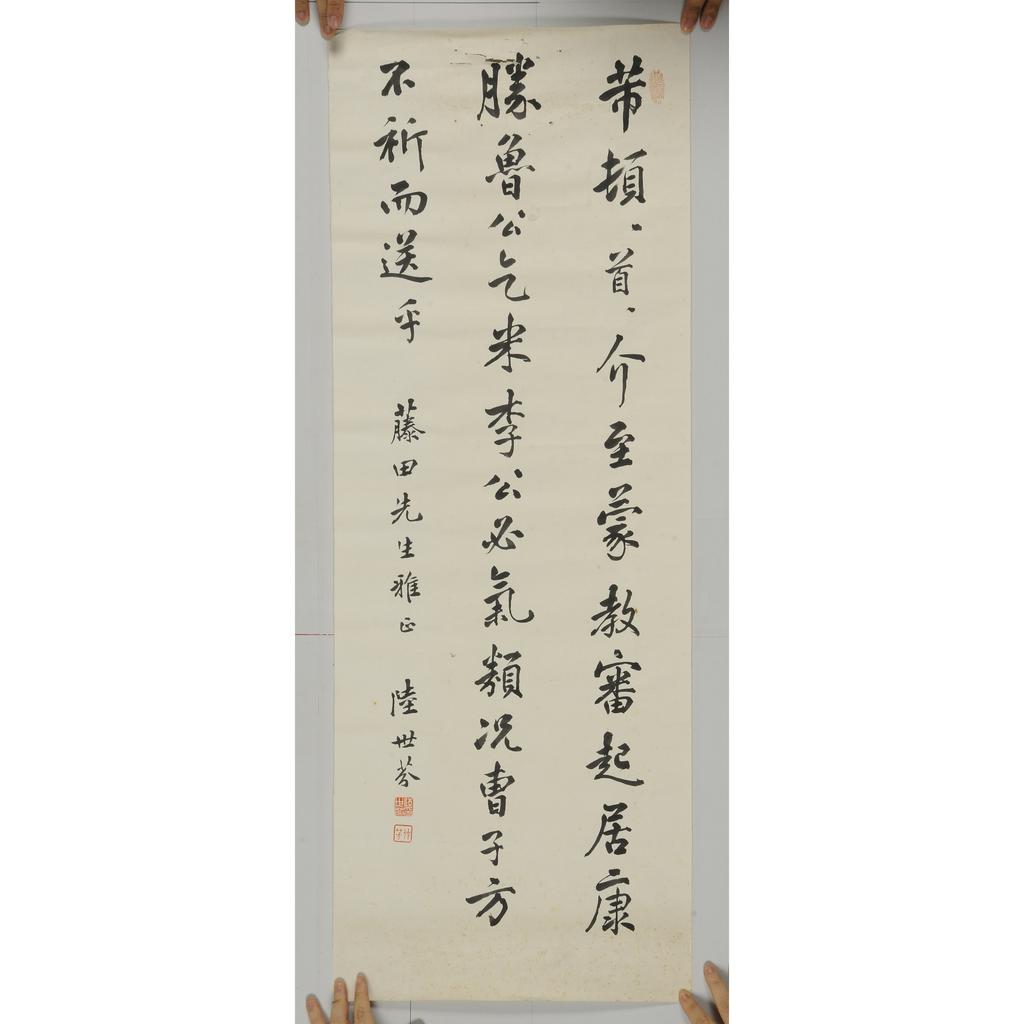 芾頓、首、介至蒙教審起居康
勝魯公乞米李公必氣類況曹子方
不祈而送乎
藤田先生雅正
陸世芬